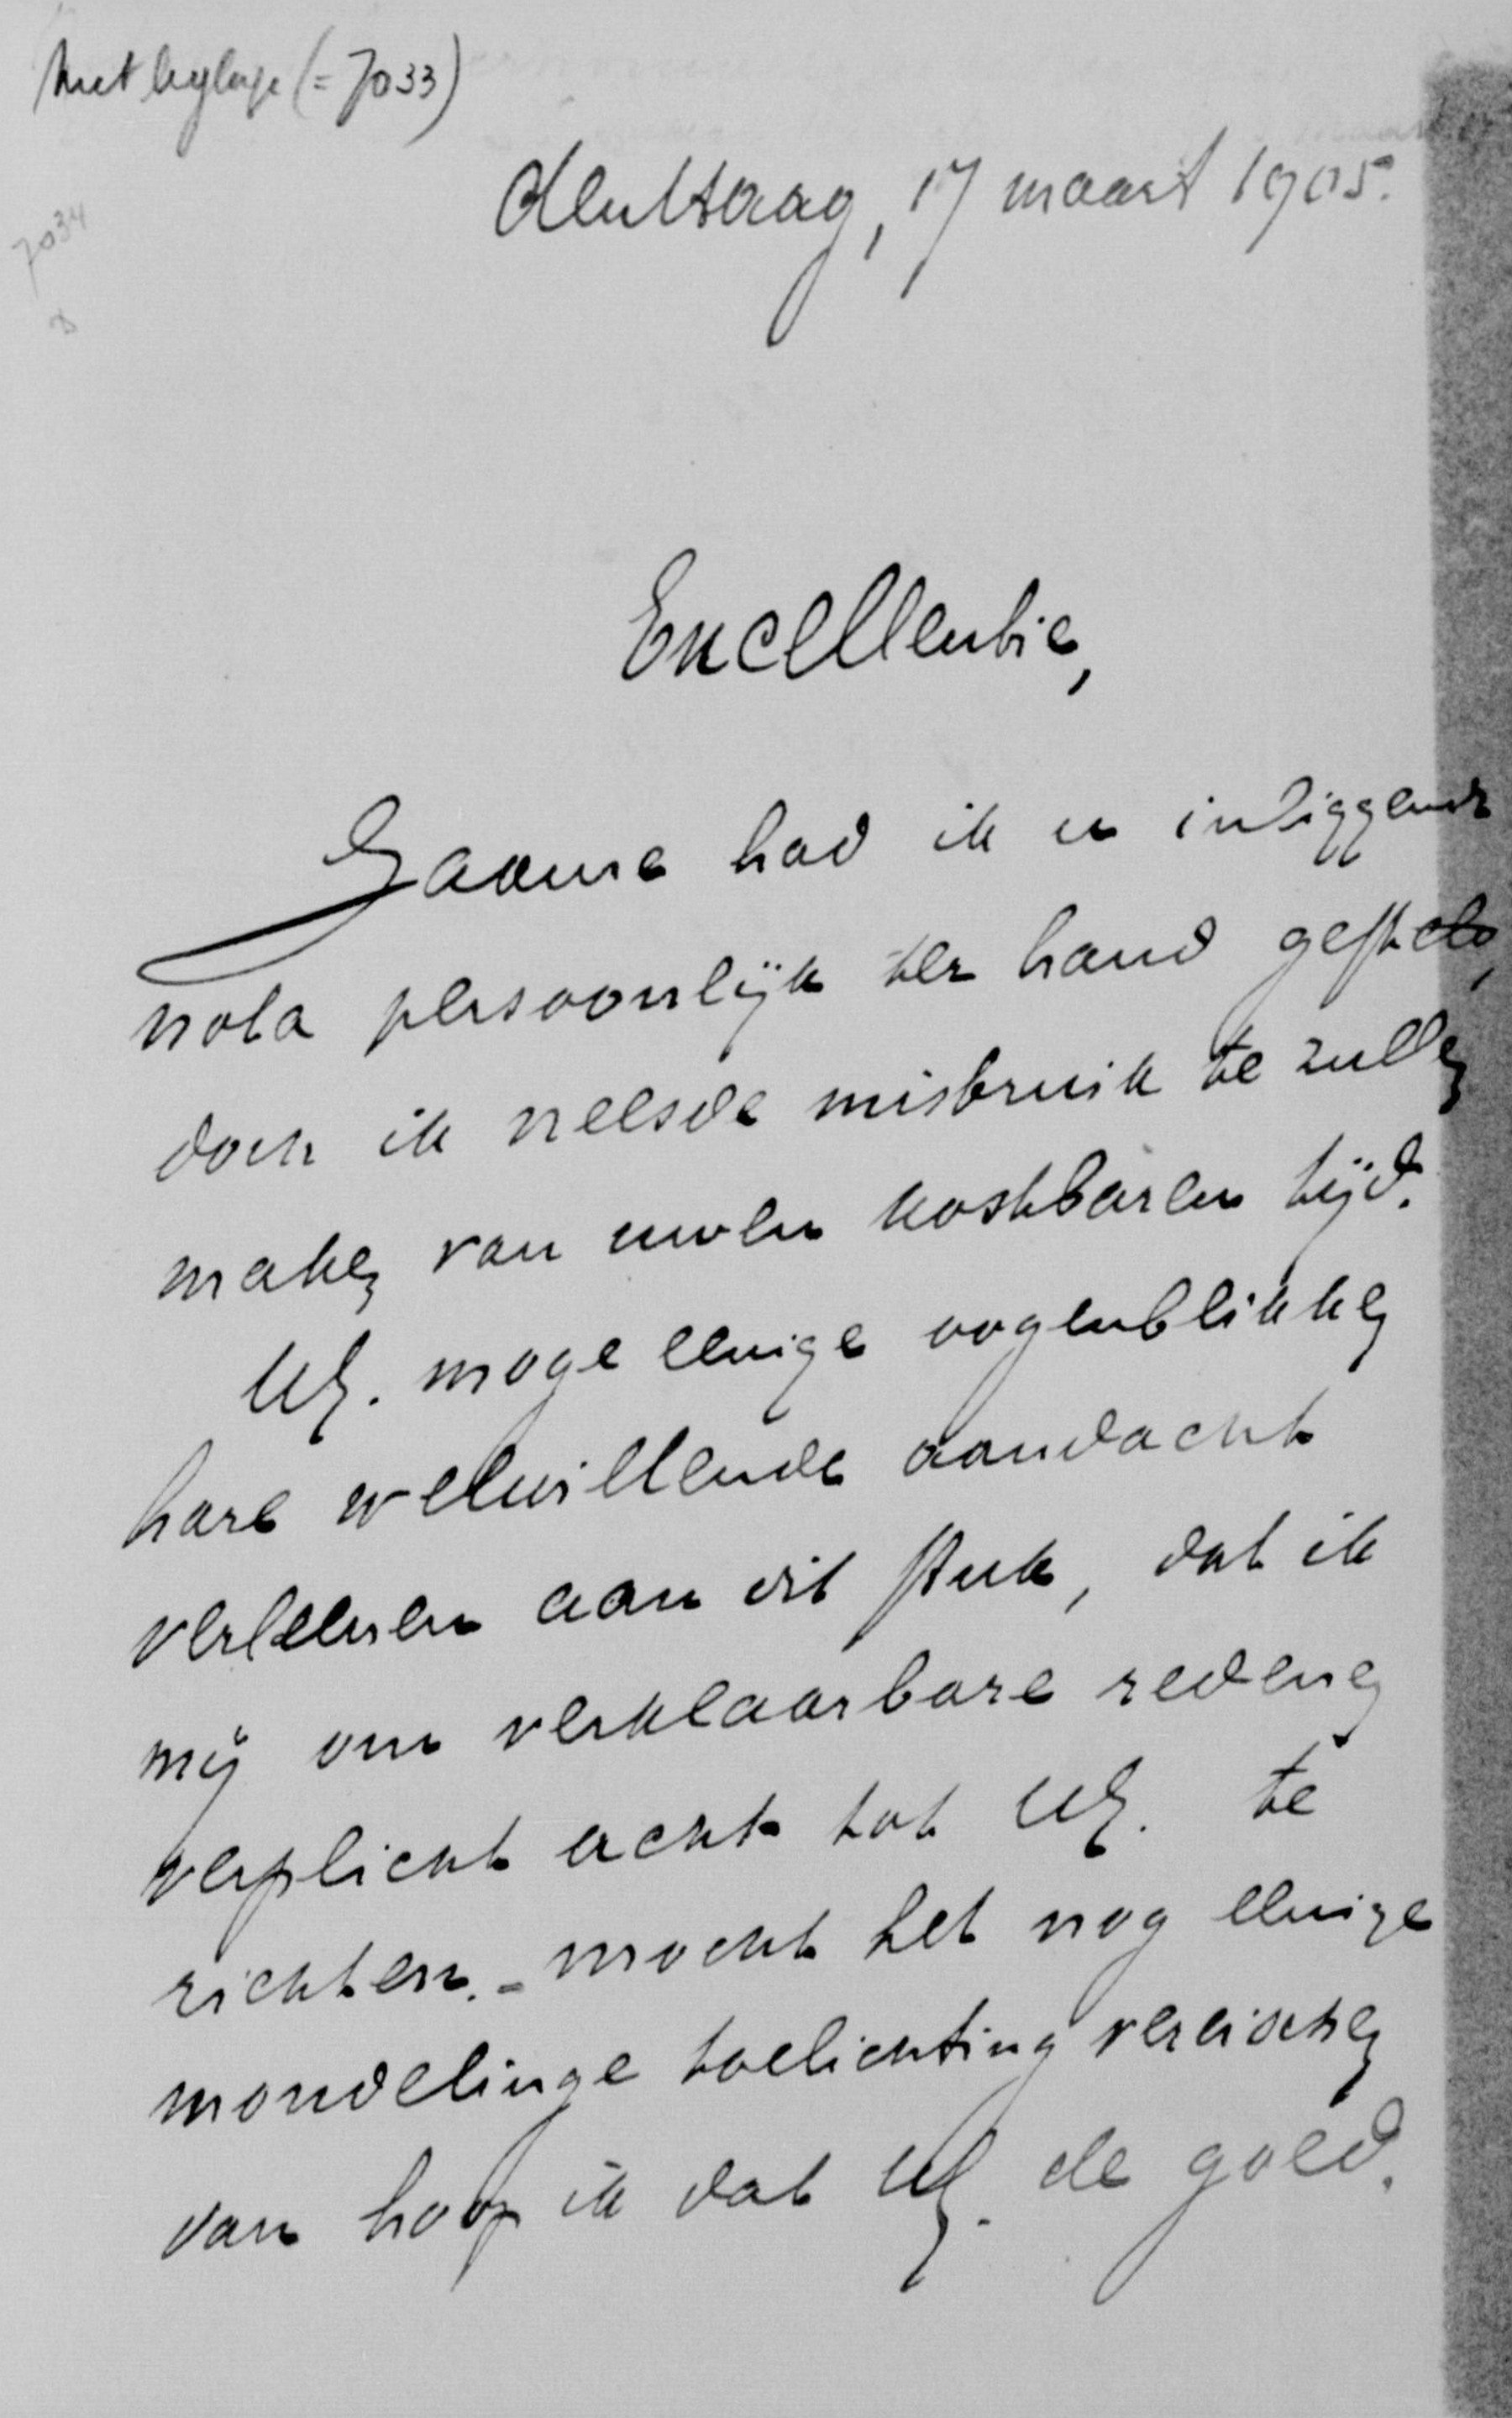 Met bylage (= 7033)
den Haag, 17 maart 1905.
7034
Excellentie,
Gaarne had ik u inliggende
nota persoonlijk ter hand gesteld,
doch ik vreesde misbruik te zullen
maken van uwen kostbaren tijd.
UE. moge eenige oogenblikken
hare welwillende aandacht
verleenen aan dit stuk, dat ik
mij om verklaarbare redenen
verplicht acht tot UE. te
richten. - mocht het nog eenige
mondelinge toelichting vereischen
dan hoop ik dat UE. de goed.